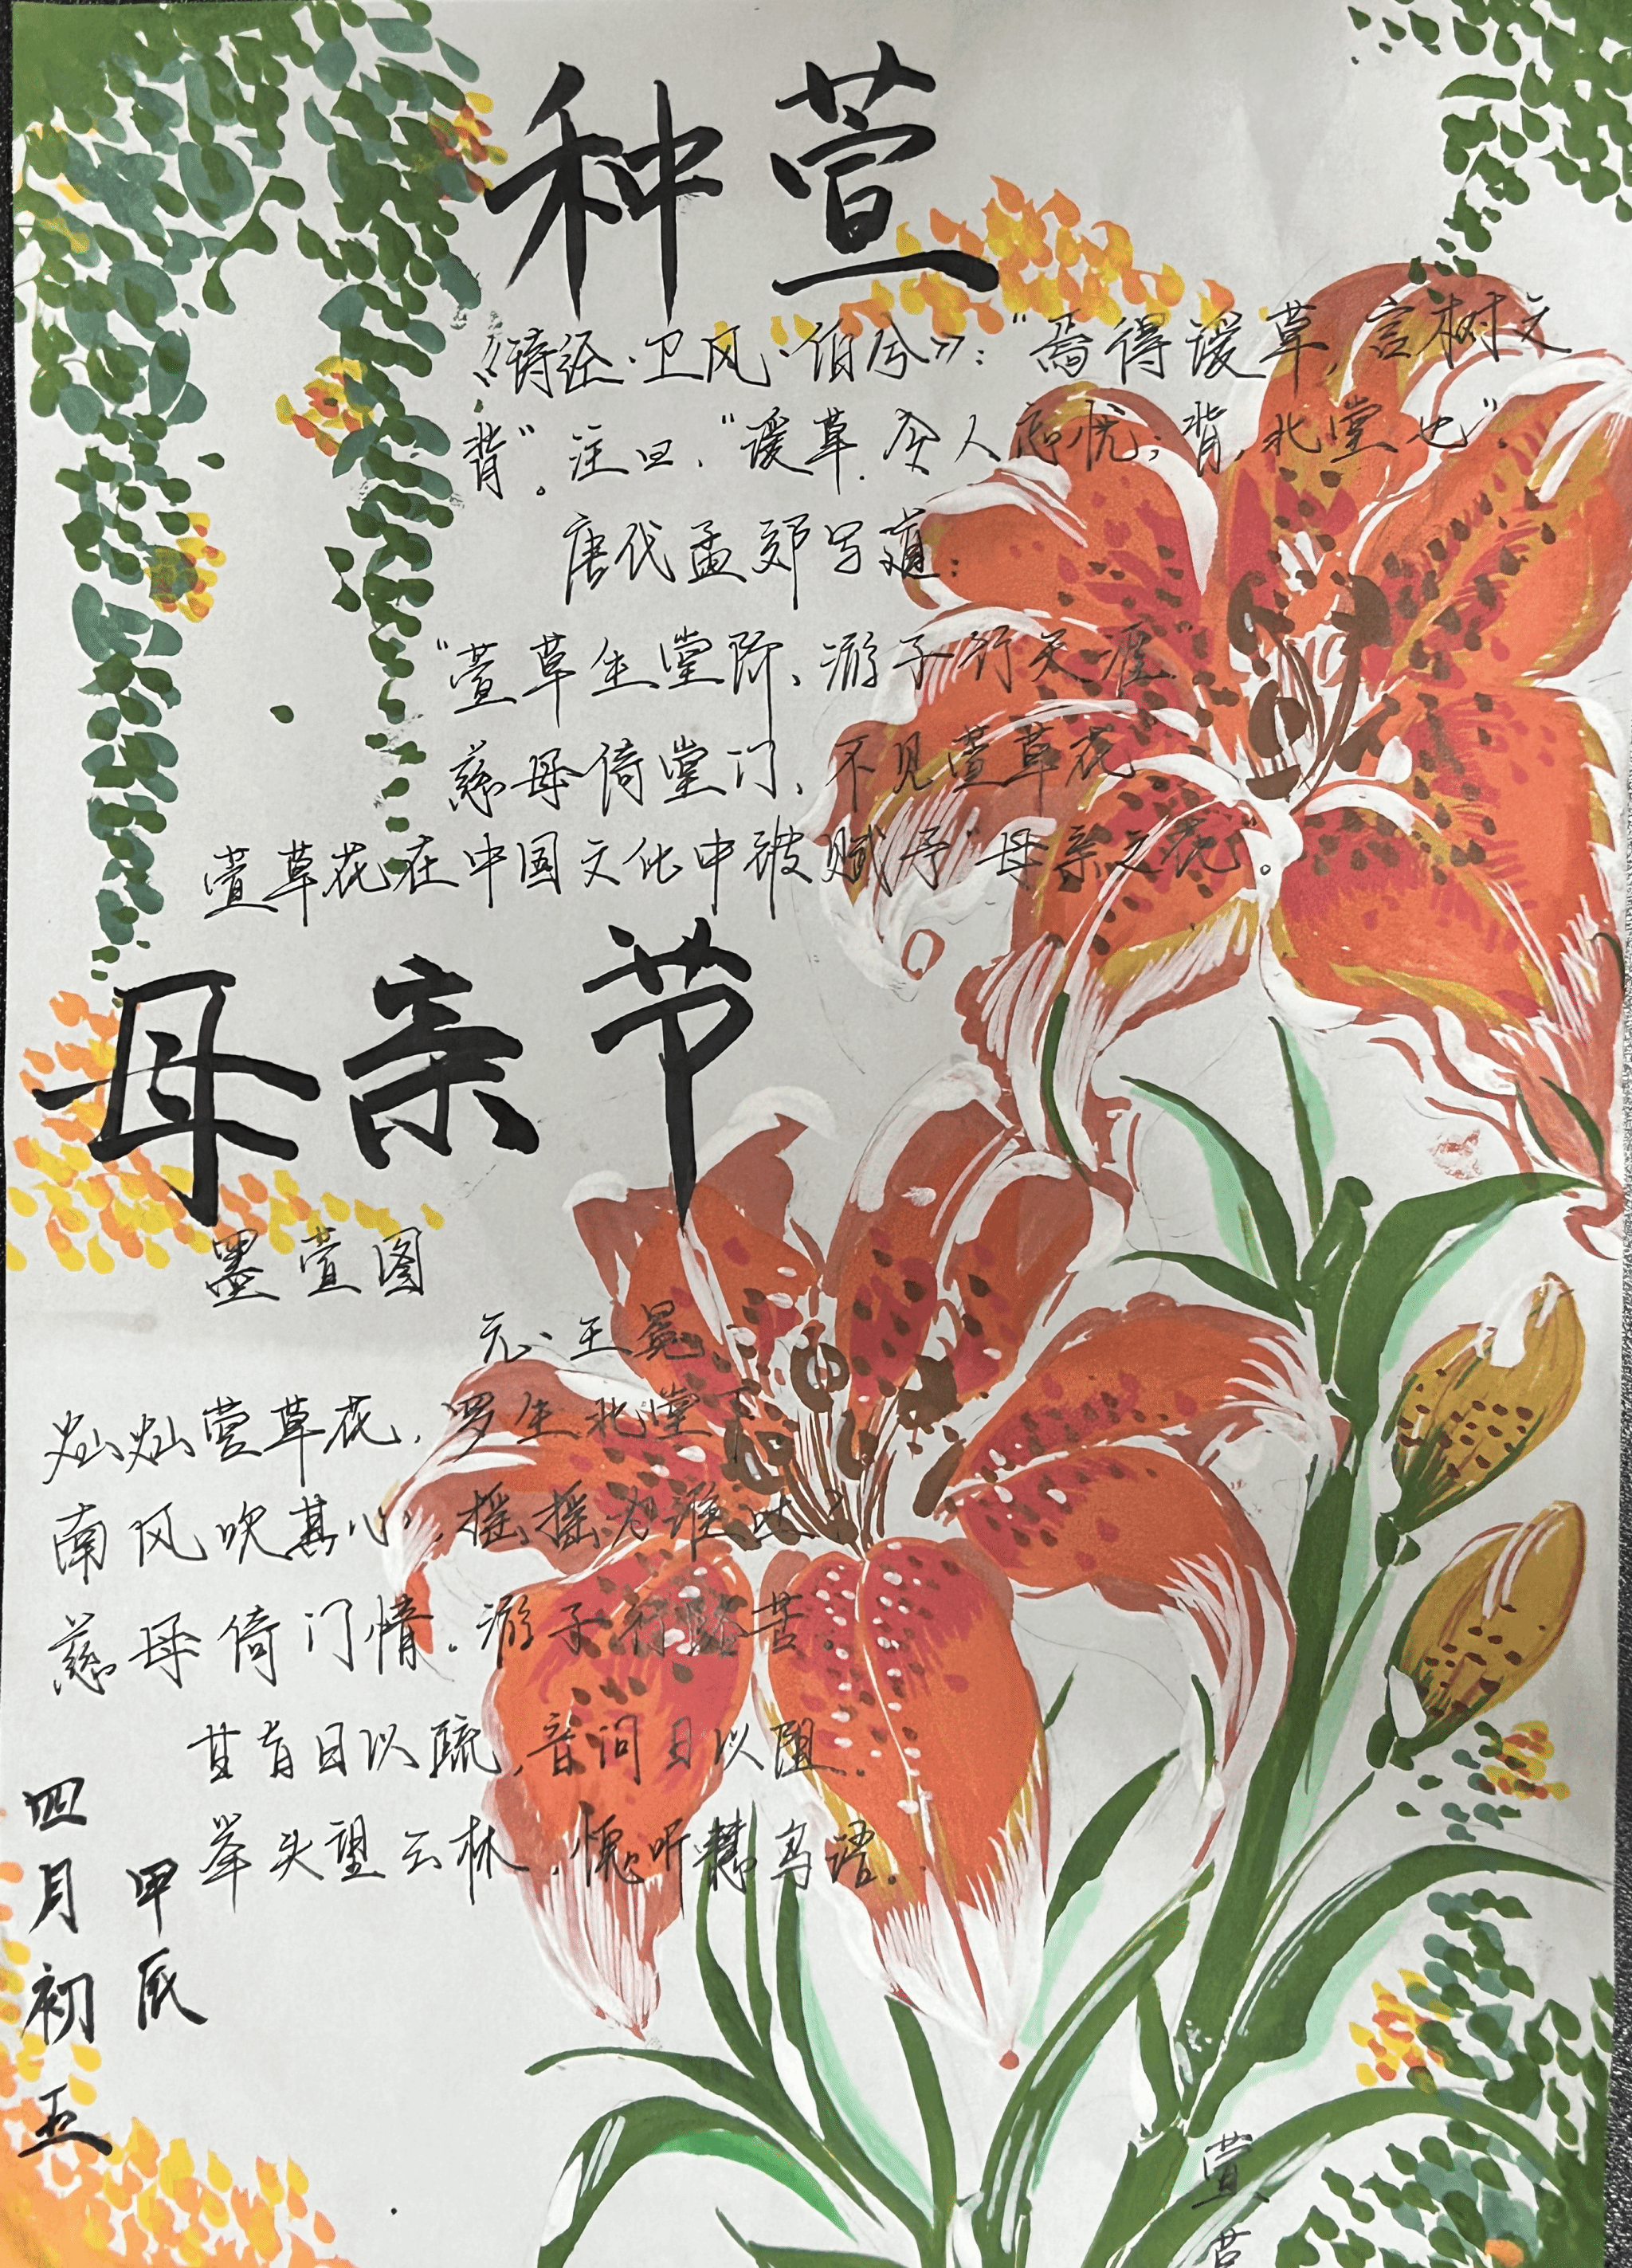 种萱
《诗经·卫风·伯兮》："焉得谖草,言树之
背"。注曰,"谖草.令人忘忧;背,北堂也".
唐代孟郊写道:
"萱草生堂阶、游子行天涯"
慈母倚堂门、不见萱草花
萱草花在中国文化中被赋予"母亲之花"。
母亲节
墨萱图
元、王冕
灿灿萱草花,罗生北堂下
南风吹其心,摇摇为谁吐?
慈母倚门情。游子行路苦
甘旨日以疏,音问日以阻.
举头望云林,愧听慧鸟语.
甲辰
四月初五
萱
草